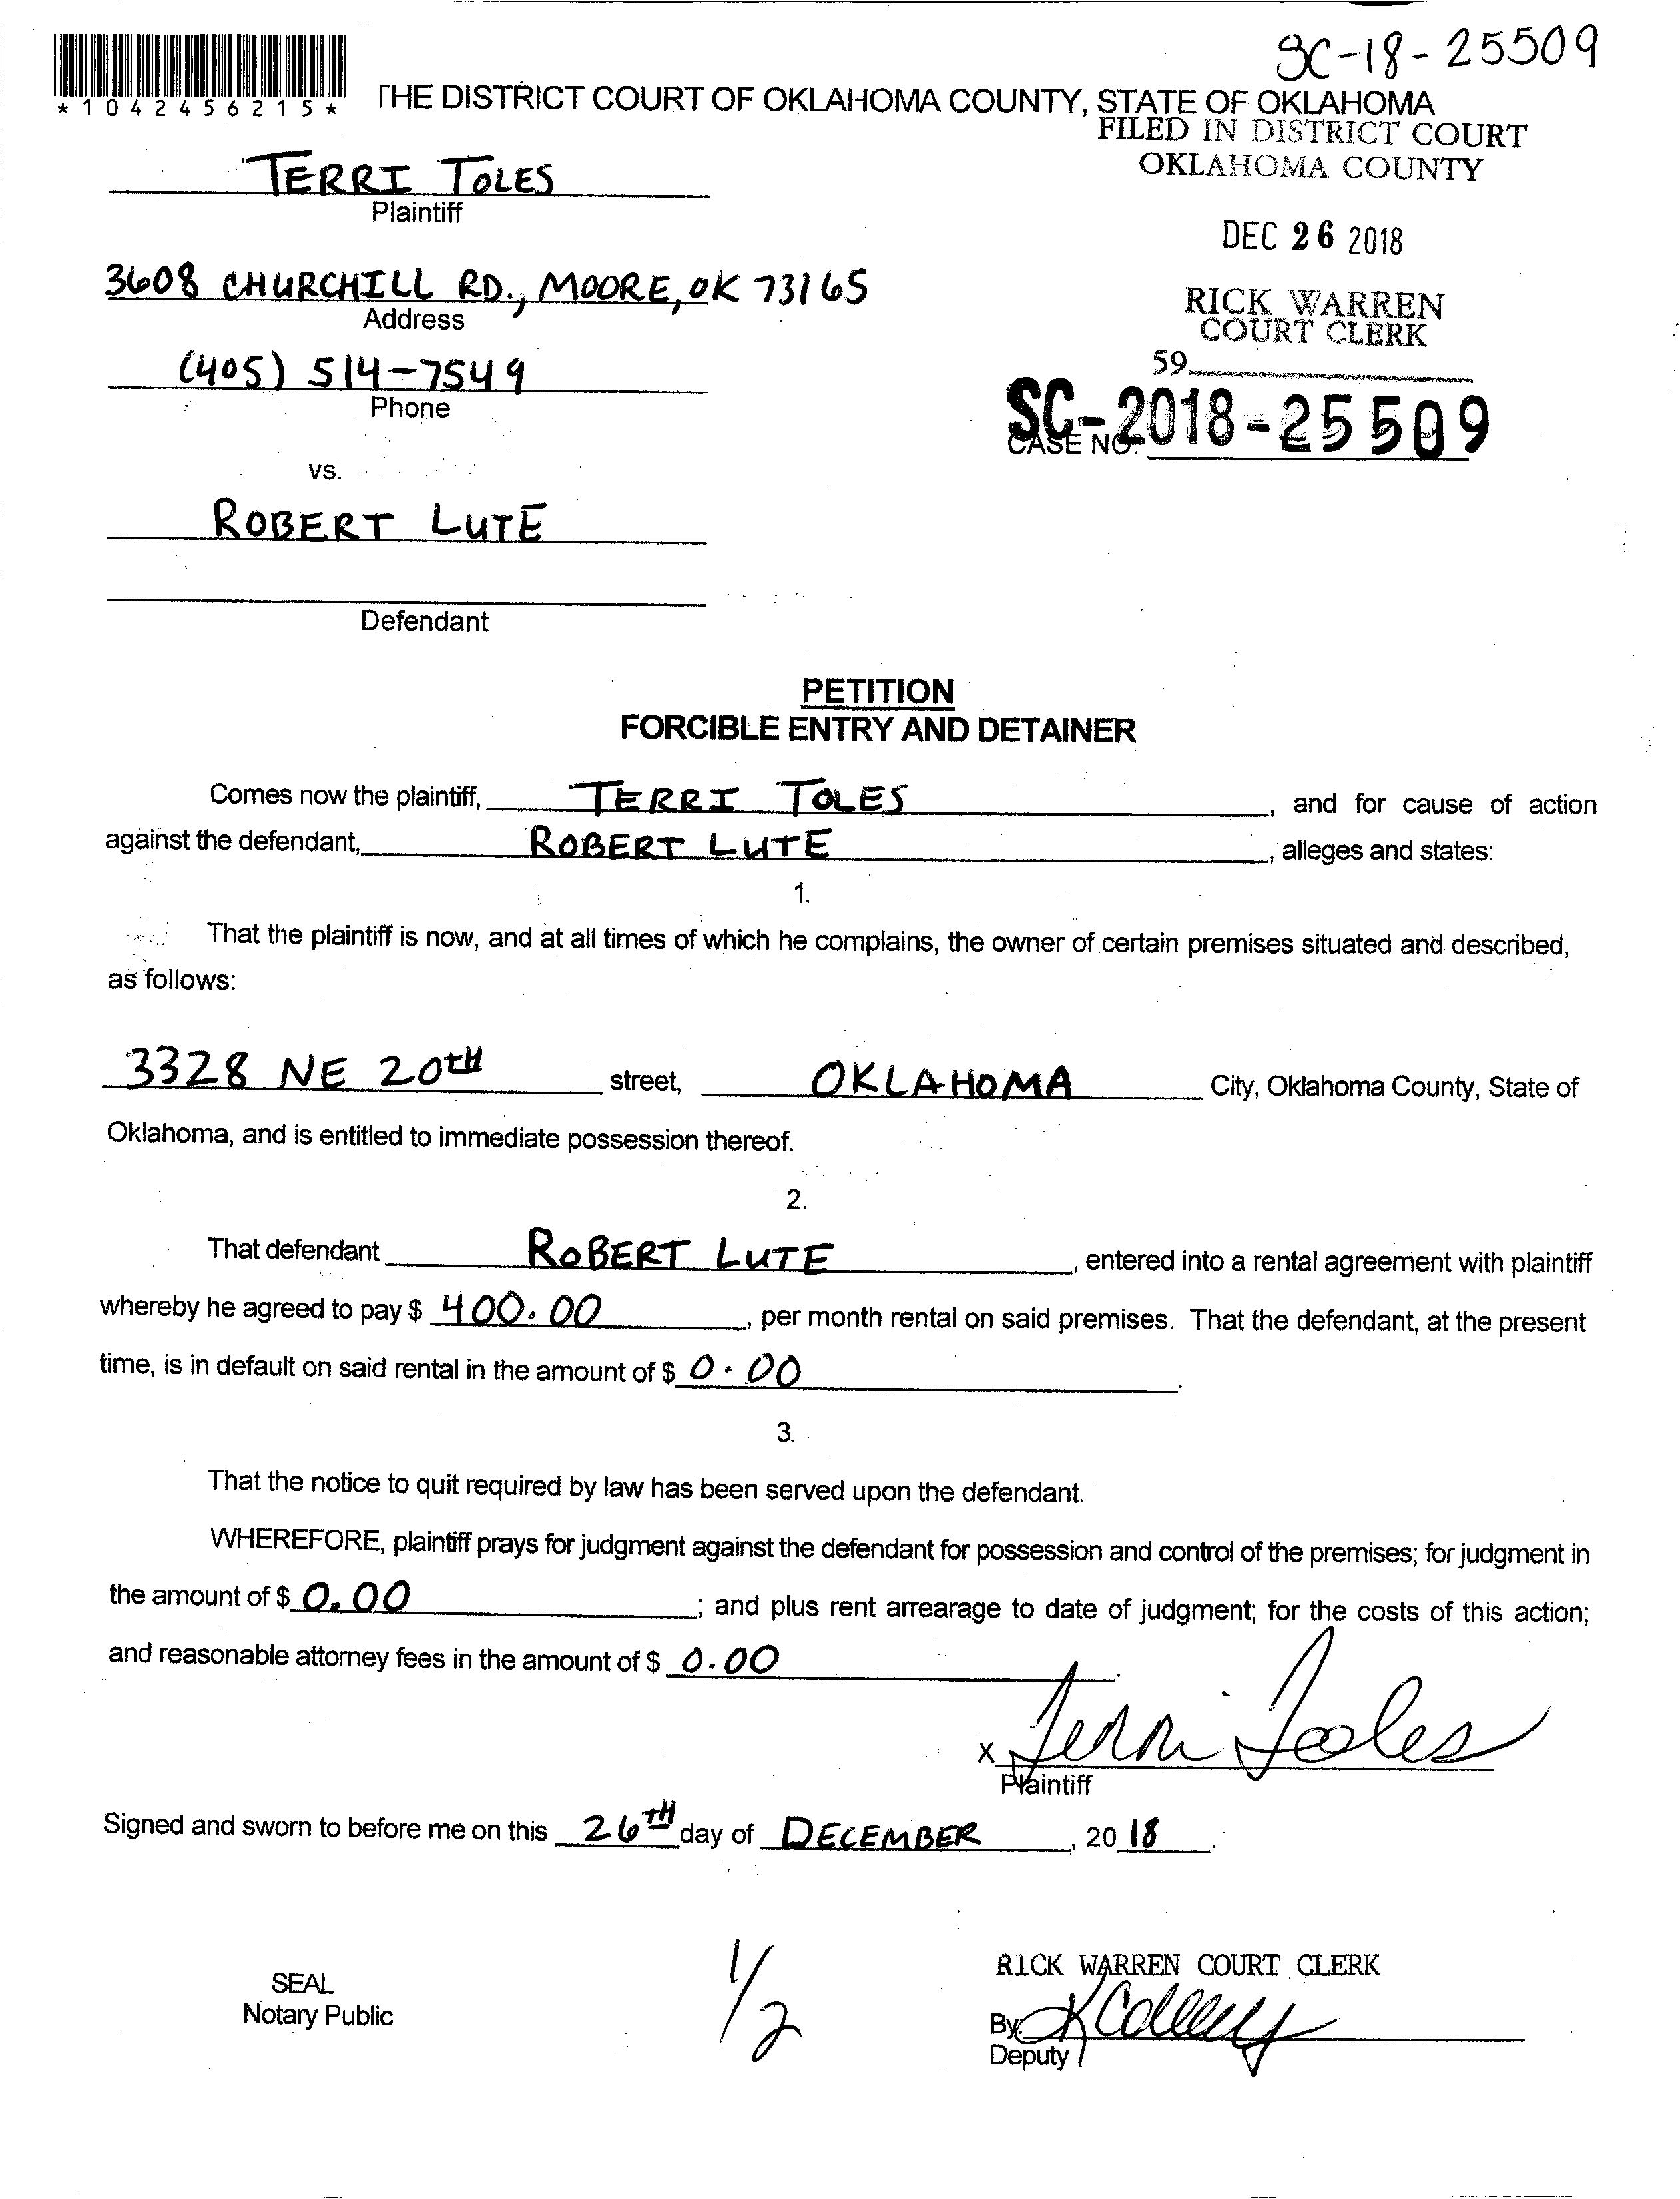 SC-18-25509
*1042456215*
THE DISTRICT COURT OF OKLAHOMA COUNTY, STATE OF OKLAHOMA
FILED IN DISTRICT COURT
OKLAHOMA COUNTY
TERRI TOLES
Plaintiff
DEC 26 2018
3608 CHURCHILL RD., MOORE, OK 73165
Address
RICK WARREN
COURT CLERK
(405) 514-7549
Phone
59
SC-2018-25509
CASE NO.
vs.
ROBERT LUTE
Defendant
PETITION
FORCIBLE ENTRY AND DETAINER
Comes now the plaintiff, TERRI TOLES, and for cause of action
against the defendant, ROBERT LUTE, alleges and states:
1.
That the plaintiff is now, and at all times of which he complains, the owner of certain premises situated and described,
as follows:
3328 NE 20TH street, OKLAHOMA City, Oklahoma County, State of
Oklahoma, and is entitled to immediate possession thereof.
2.
That defendant ROBERT LUTE, entered into a rental agreement with plaintiff
whereby he agreed to pay $ 400.00, per month rental on said premises. That the defendant, at the present
time, is in default on said rental in the amount of $ 0.00.
3.
That the notice to quit required by law has been served upon the defendant.
WHEREFORE, plaintiff prays for judgment against the defendant for possession and control of the premises; for judgment in
the amount of $ 0.00; and plus rent arrearage to date of judgment; for the costs of this action;
and reasonable attorney fees in the amount of $ 0.00.
x Terri Toles
Plaintiff
Signed and sworn to before me on this 26TH day of DECEMBER, 2018.
RICK WARREN COURT CLERK
SEAL
Notary Public
1/2
By:
Deputy